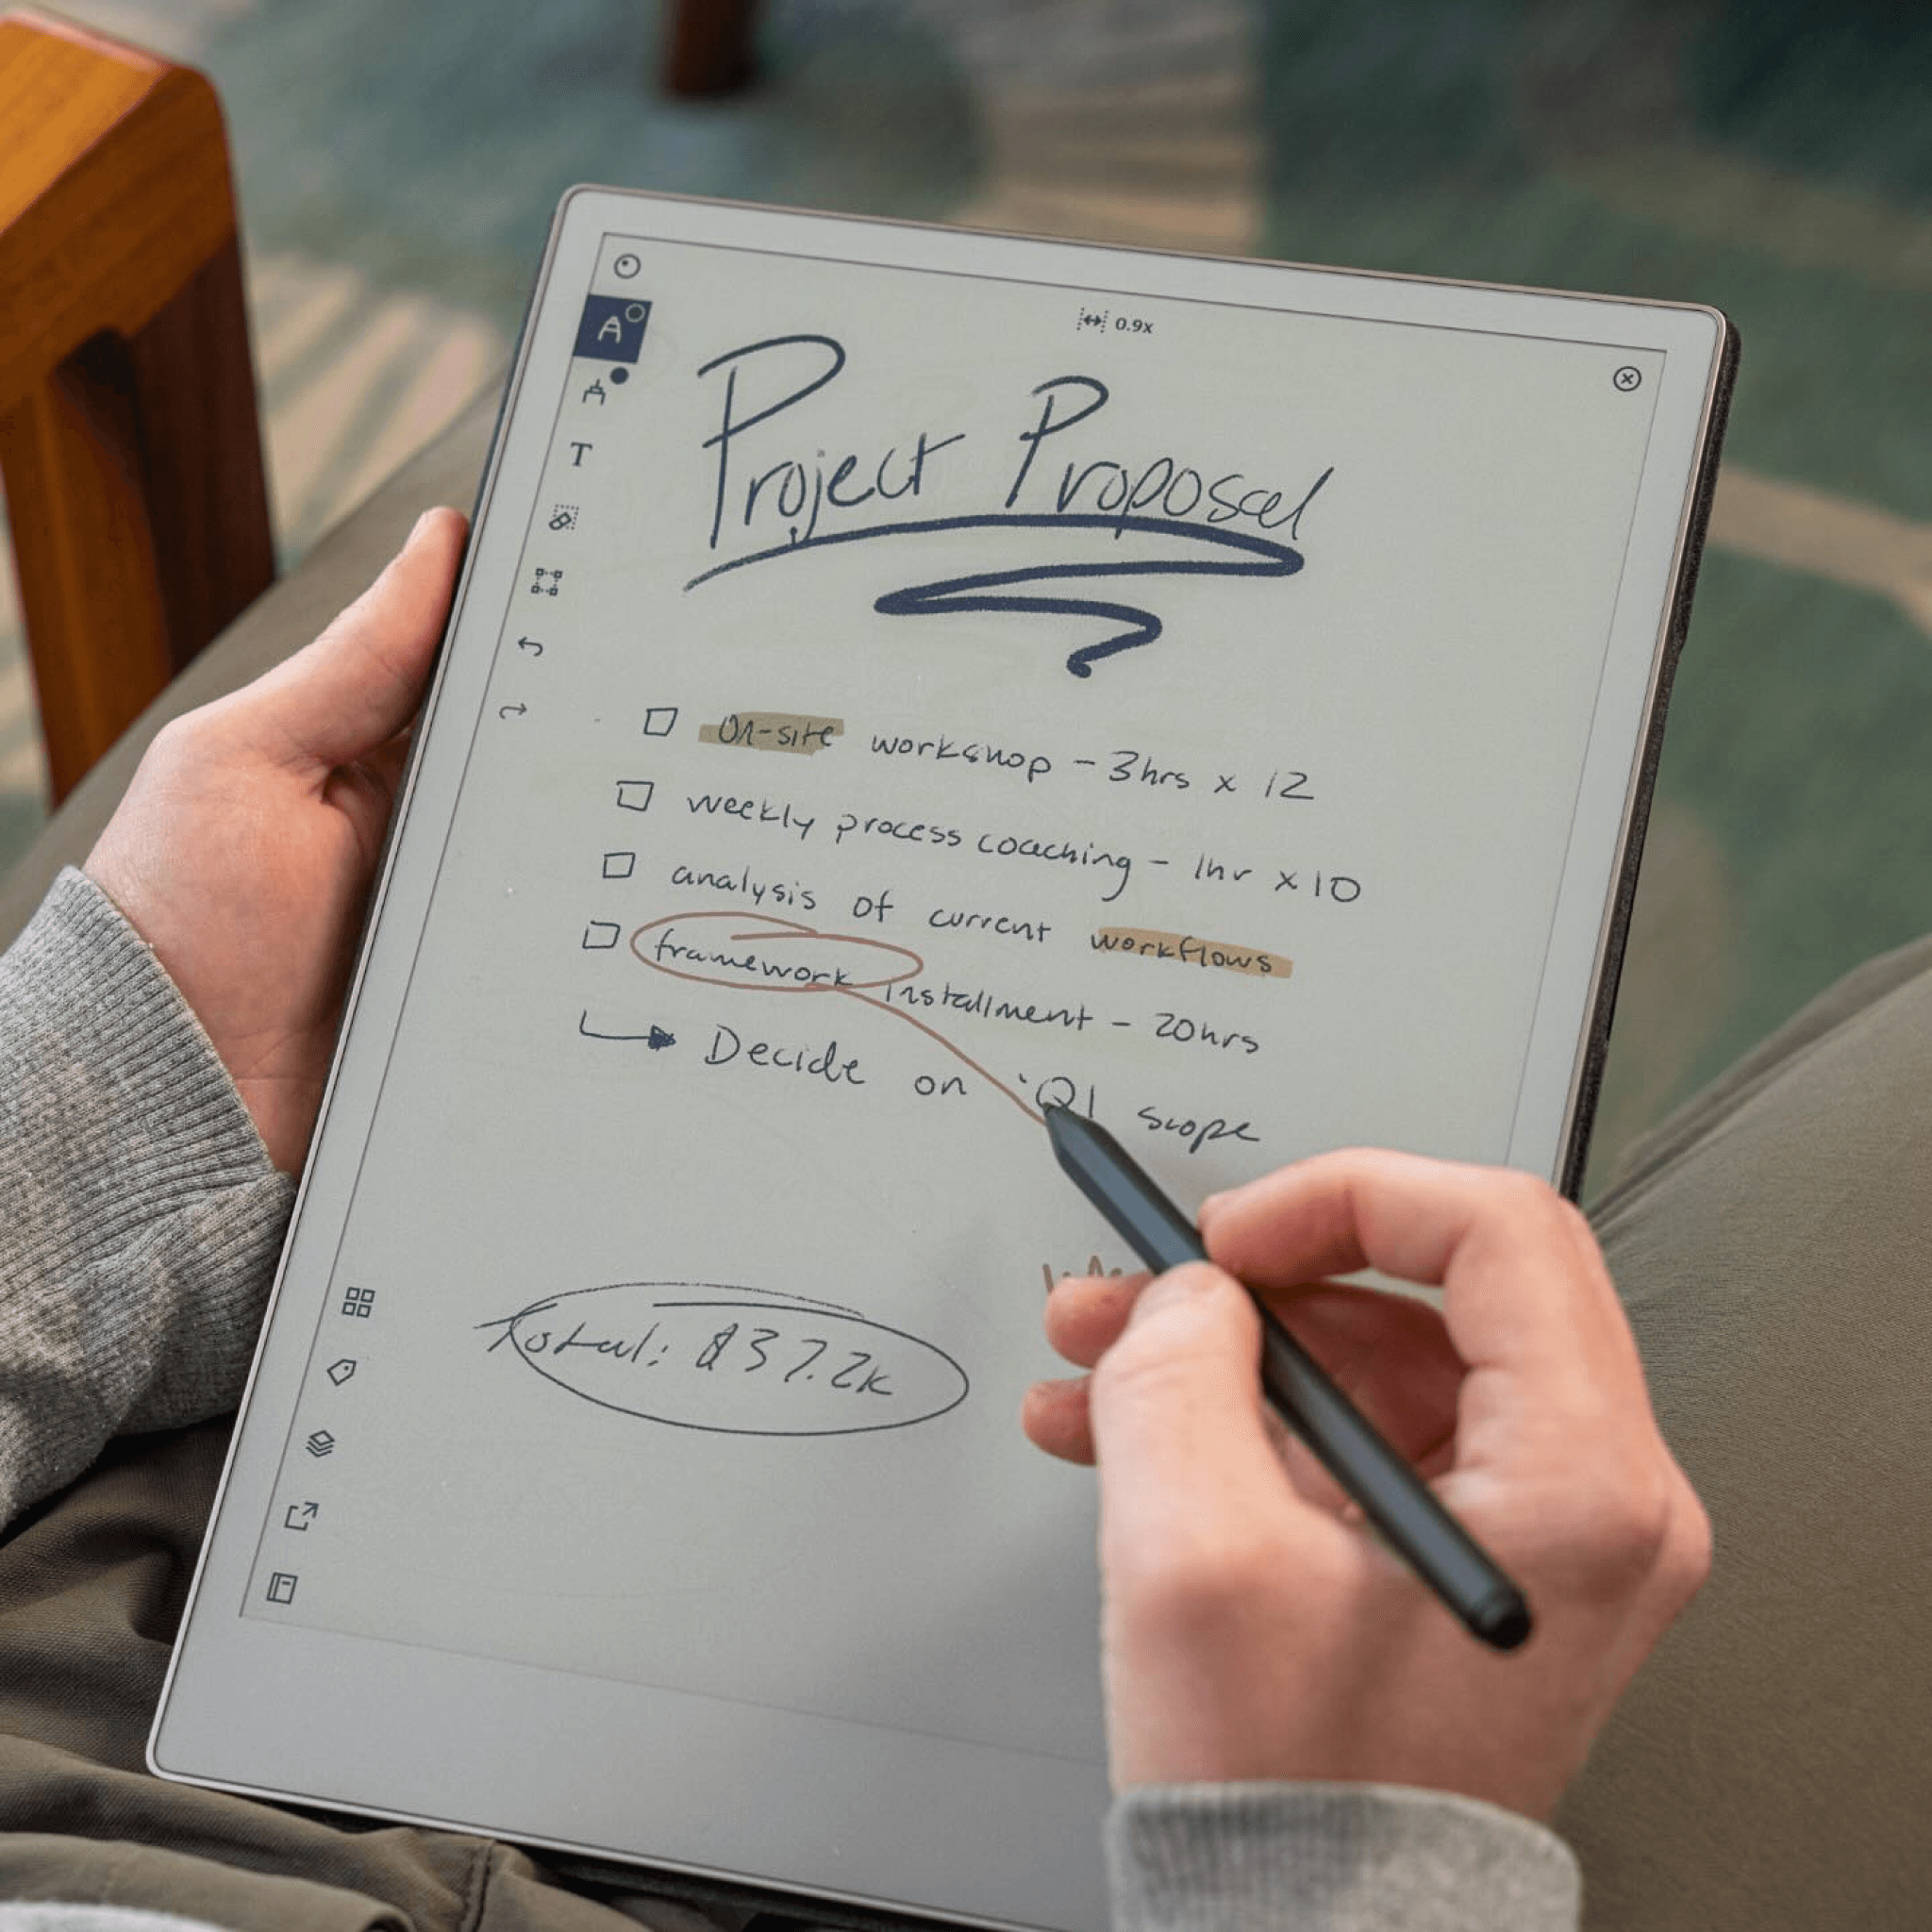 0.9x
Project Proposal
On-site workshop - 3hrs x 12
weekly process coaching - 1hr x 10
analysis of current workflows
framework installment - 20hrs
Decide on Q1 scope
Total: $37.2k